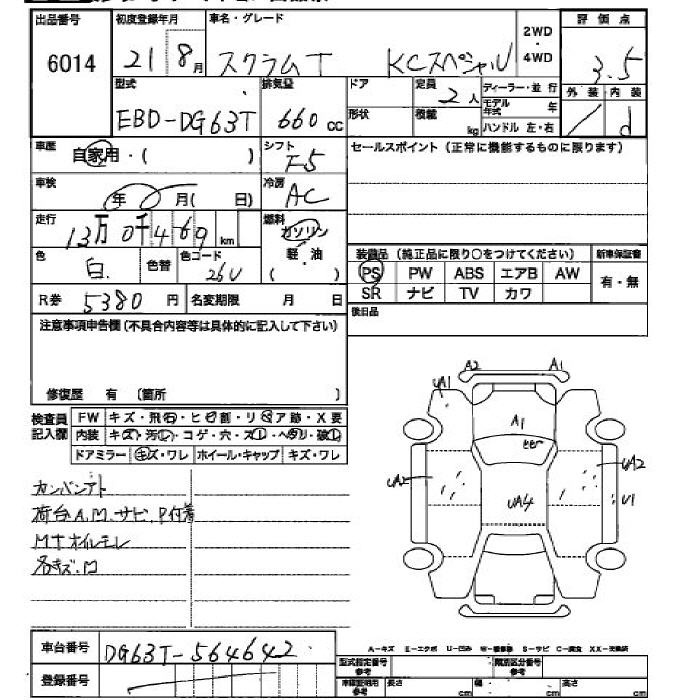 出品番号 初度登録年月 車名・グレード 2WD・4WD 評価点
6014 21 8月 スクラムT KCスペシャル 3.5
外装 内装
d
型式 排気量 ドア 定員 2人 ディーラー・並行
EBD-DG63T 660cc 形状 積載 kg モデル年式 年
ハンドル 左・右
車歴 自家用・( ) シフト F5 セールスポイント(正常に機能するものに限ります)
車検 年 月( 日) 冷房 AC
走行 13万0千469km 燃料 ガソリン 軽・油 ( )
色 白. 色替 色コード 26U
装備品 (純正品に限り○をつけてください) 新車保証書
PS PW ABS エアB AW 有・無
SR ナビ TV カワ
R券 5380円 名変期限 月 日
後日品
注意事項申告欄(不具合内容等は具体的に記入して下さい)
修復歴 有 (箇所 )
検査員記入欄 FW キズ・飛石・ヒビ割・リペア跡・X要
内装 キズ・汚レ・コゲ・穴・スレ・ヘタリ・破レ
ドアミラー キズ・ワレ ホイール・キャップ キズ・ワレ
カンバンアト
荷台A.M.サビ.P付着
MTオイルモレ
各キズ.M
A2 A1
UA1
A1
UA2 UA4 UA2
U1
車台番号 DG63T-564642
登録番号
A-キズ E-エクボ U-凹み W-補修跡 S-サビ C-腐食 XX-交換済
型式指定番号参考 類別区分番号参考
車庫証明用参考 長さ cm 幅 cm 高さ cm